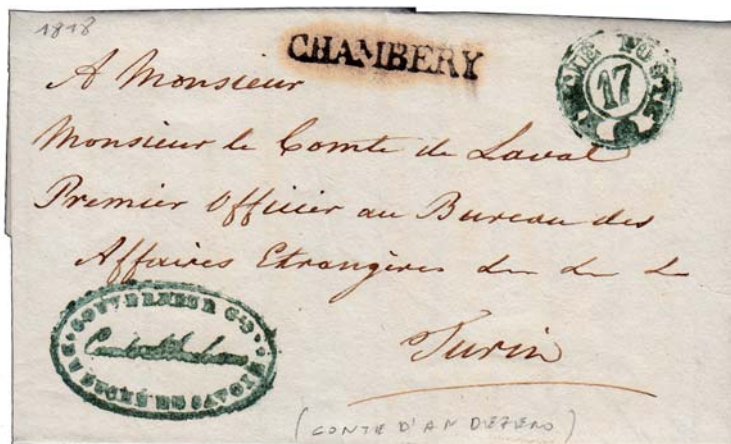 1818
CHAMBERY
REGIE POSTE
17
A Monsieur
Monsieur le Comte de Laval
Premier Officier au Bureau des
Affaires Etrangères
Turin
GOUVERNEUR G.
DU DUCHÉ DE SAVOIE
(CONTE D'ANDEZENO)